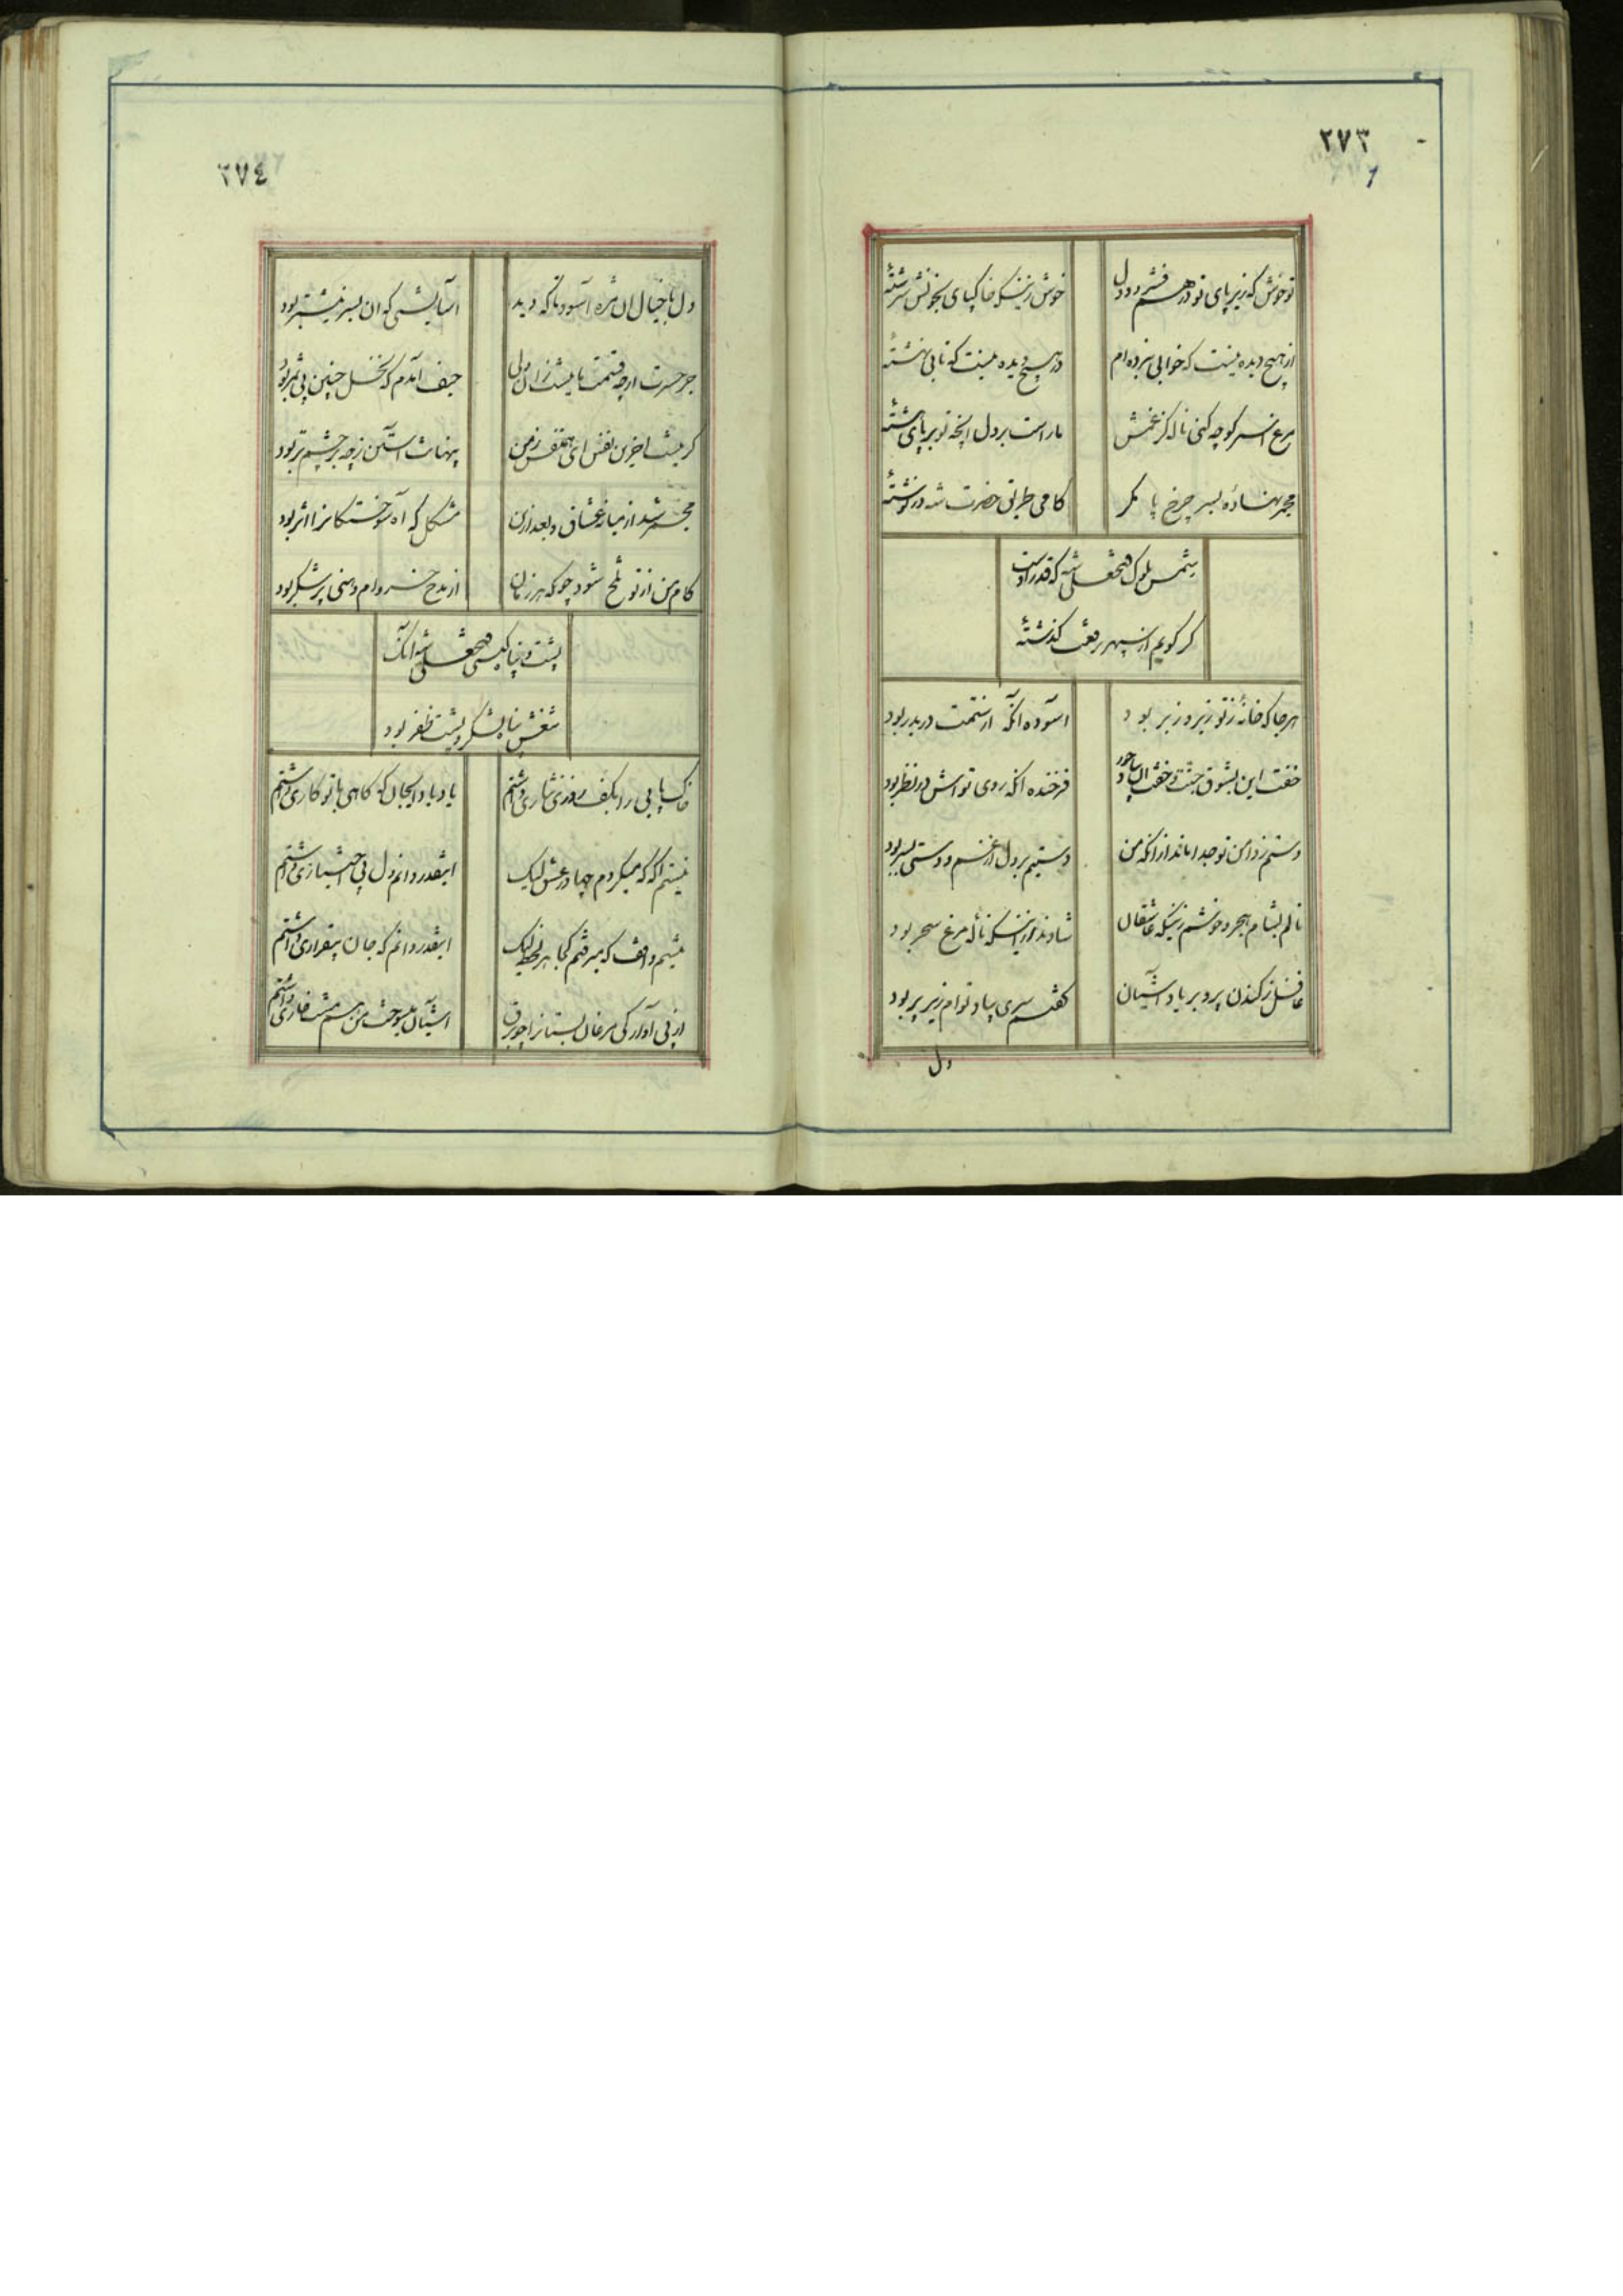 ٢٧٣
تو خوش که زیر پای تو در هم فشرد دل
خوش زینکه خاکپای بخونش سرشتهٔ
از هیچ دیده نیست که خوابی نبرده‌ام
در هیچ دیده نیست که تابی نهشتهٔ
مرغ اسیر کو چه کنی ناله کز غمش
ما راست بر دل آنچه تو بر پای رشتهٔ
مجمر نهادهٔ بسر چرخ پا مگر
کامی طریق حضرت شه در نوشتهٔ
شمس ملوک فتحعلی شه که قدر اوست
گر گویم از سپهر رفعت گذشتهٔ
هرجا که خانهٔ ز تو زیر و زبر بود
آسوده آنکه از ستمت دربدر بود
خفت این بشوق جنت و خفت آن بیاد حور
فرخنده آنکه روی تواش در نظر بود
دستم ز دامن تو جدا ماند از آنکه من
دستیم بر دل از غم و دستی بسر بود
نالم بشام هجر و خوشم زینکه عاشقان
شادند از اینکه نالهٔ مرغ سحر بود
غافل ز کندن پر و بر یاد آشیان
گفتم سری بیاد توام زیر پر بود
دل
٢٧٤
دل با خیال آن مژه آسود تا که دید
آسایشی که آن بسر نیشتر بود
جز حسرت ارچه قسمت ما نیست زان ولی
حیف آیدم که نخل چنین بی ثمر بود
گر نیست آخرین نفس ای همنفس ز من
پنهانت آستین ز چه بر چشم تر بود
مجمر شد از میانهٔ عشاق و بعد ازین
مشکل که آه سوختگانرا اثر بود
کام من از تو تلخ شود چو که هر زمان
از مدح خسروام دهنی پر شکر بود
پشت و پناه کیتی فتحعلی شه آنک
تیغش پناه لشکر و پشت ظفر بود
خاک پایی را بکف روزی نثاری داشتم
یاد باد ایجان که گاهی با تو کاری داشتم
نیستم آگه که میکردم چها در عشق لیک
اینقدر دانم دل بی اختیاری داشتم
نیستم واقف که میرفتم کجا هر لحظه لیک
اینقدر دانم که جان بیقراری داشتم
از پی آوارگی مرغان بستانرا چو برق
آشیان میسوخت من هم مشت خاری داشتم